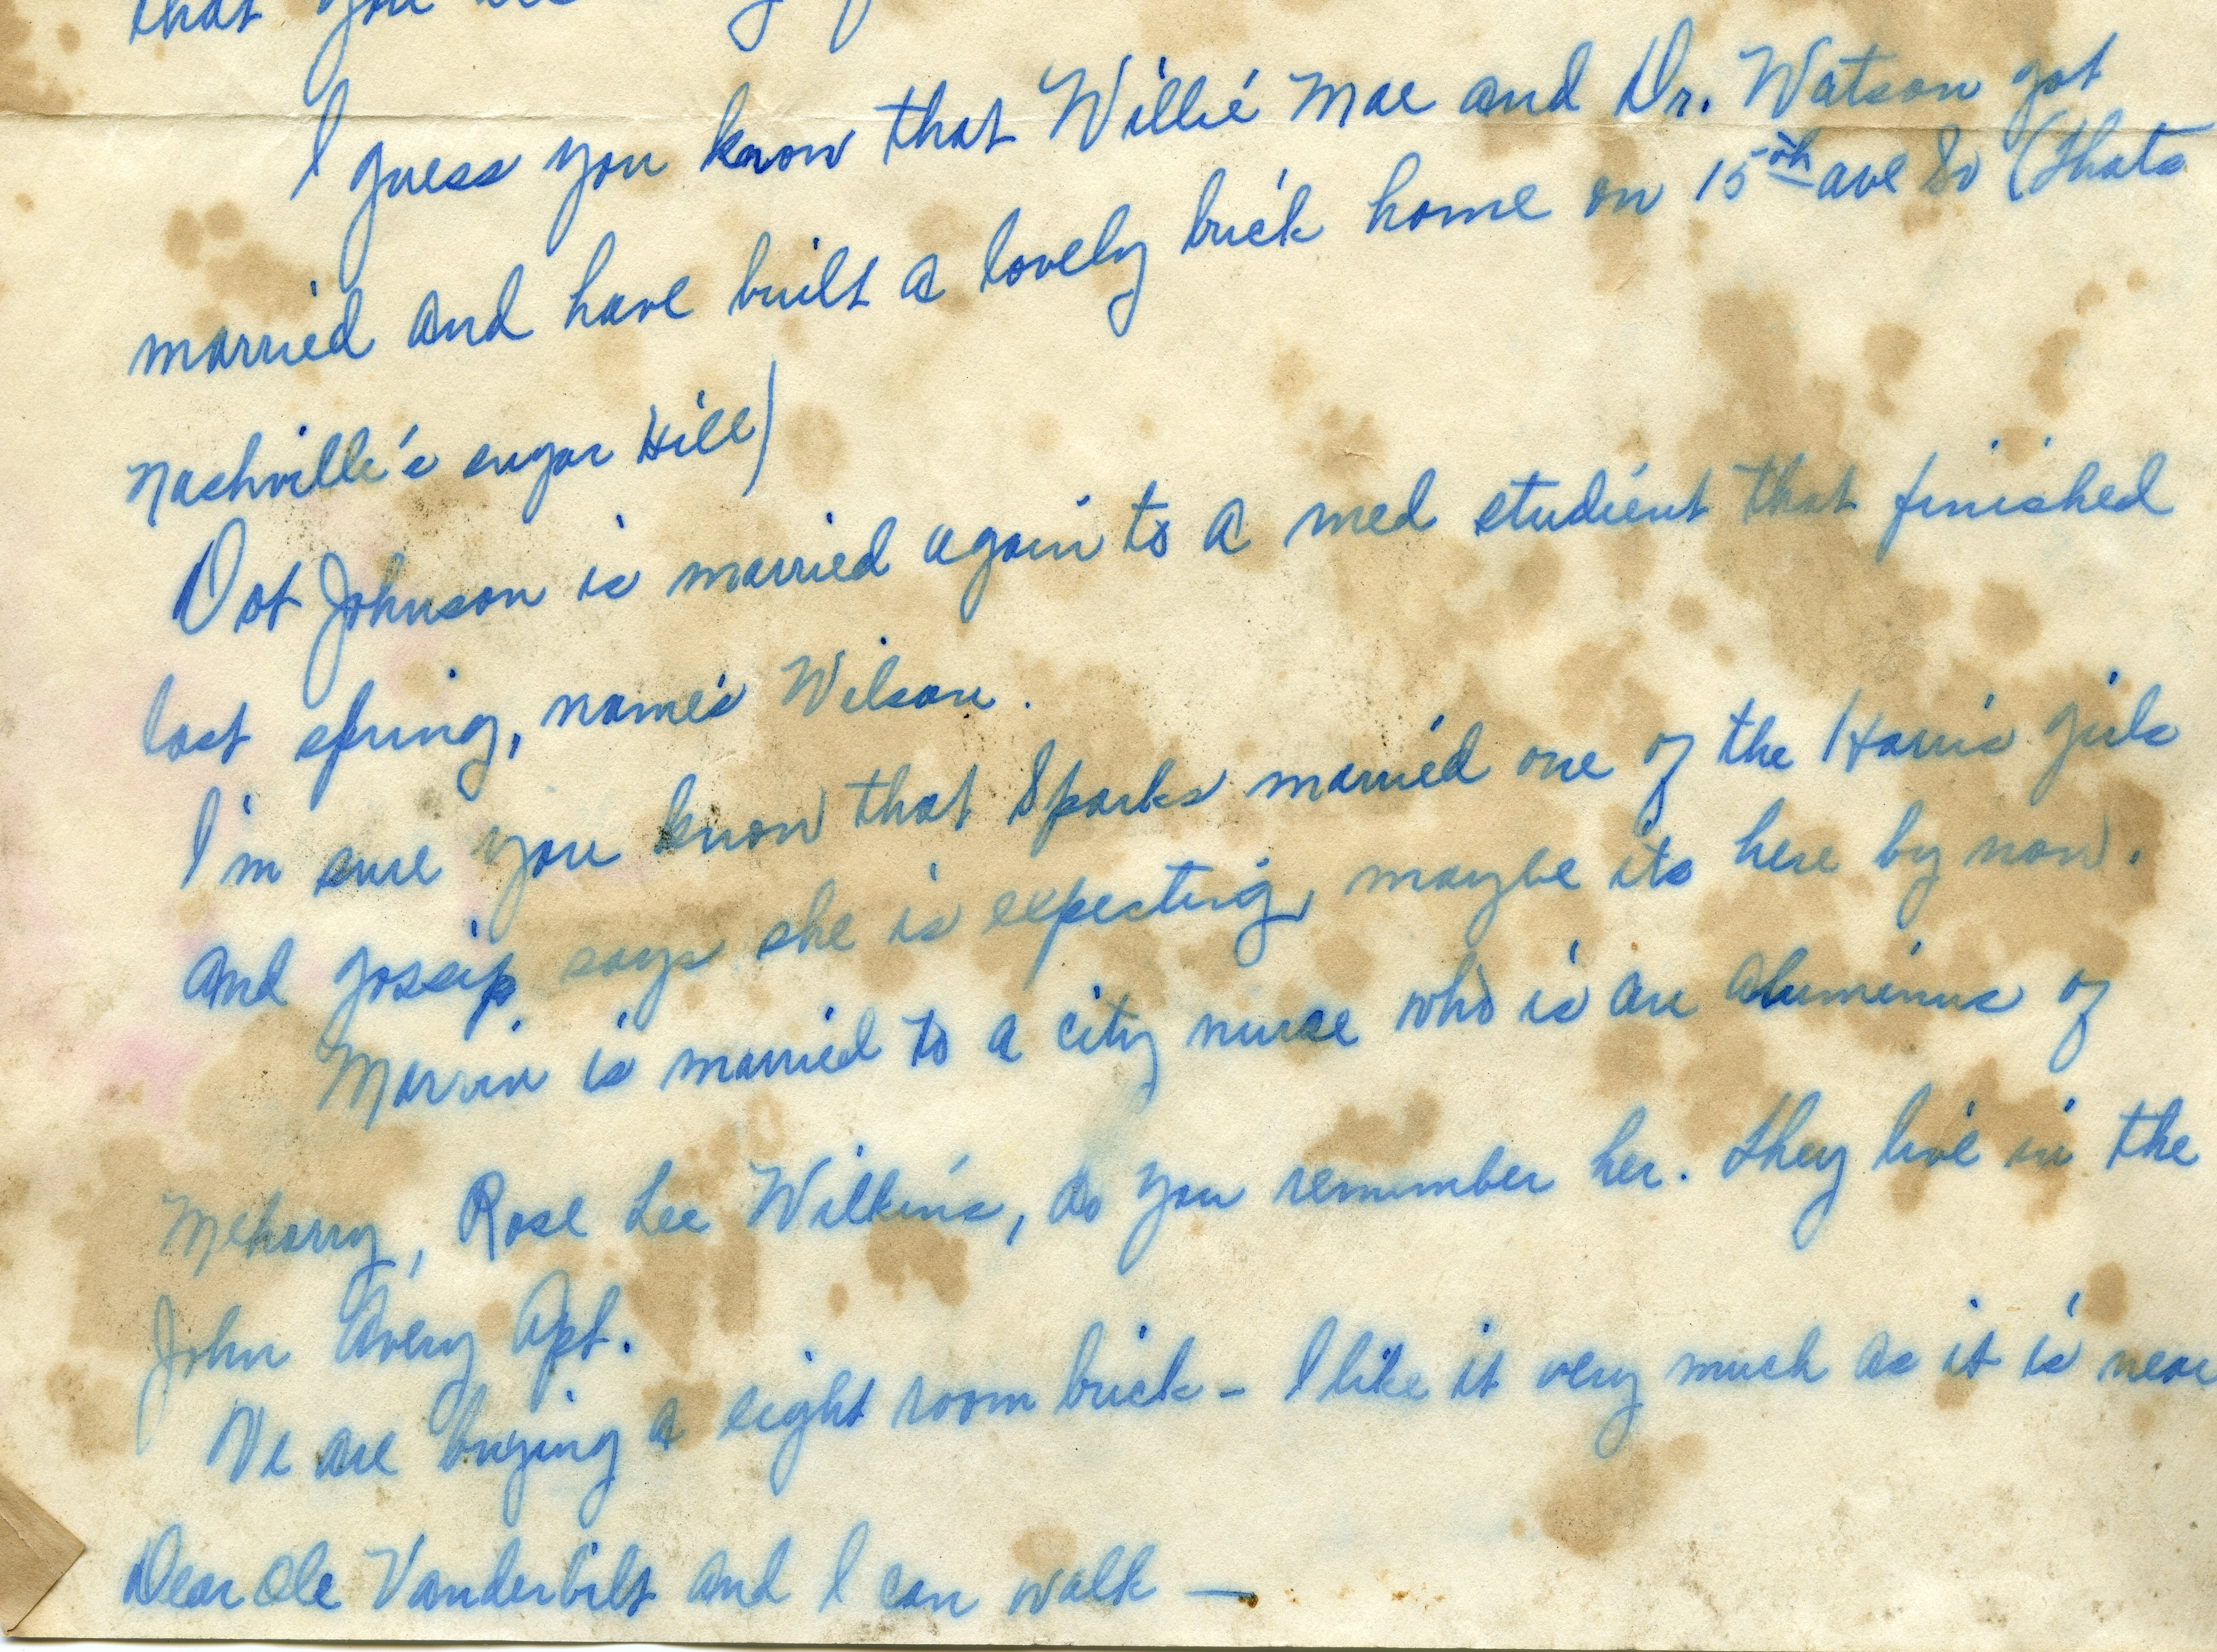 that you
I guess you know that Willie Mae and Dr. Watson got
married and have built a lovely brick home on 15th ave So (thats
Nashville's sugar Hill)
Dot Johnson is married again to a med student that finished
last spring, name's Wilson.
I'm sure you know that Sparks married one of the Harris girls
and gossip says she is expecting, maybe its here by now.
Marvin is married to a city nurse who is an aluminus of
Meharry, Rose Lee Wilkins, do you remember her. They live in the
John Avery Apt.
We are buying a eight room brick - I like it very much as it is near
Dear Ole Vanderbilt and I can walk —